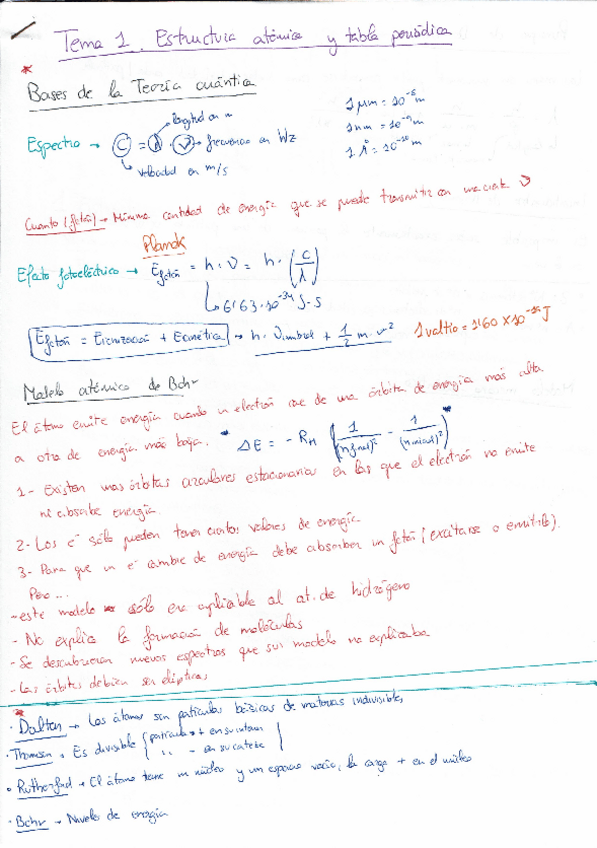 Tema 1. Estructura atómica y tabla periódica
*
Bases de la Teoría cuántica
longitud en m
Espectro → C = λ · ν → frecuencia en Hz
↳ velocidad en m/s
1 μm = 10⁻⁶ m
1 nm = 10⁻⁹ m
1 Å = 10⁻¹⁰ m
Cuanto (fotón) → Mínima cantidad de energía que se puede transmitir en una cierta ν
Planck
Efecto fotoeléctrico → Efotón = h · ν = h · (C/λ)
↳ 6'63 · 10⁻³⁴ J·s
Efotón = Eionización + Ecinética → h · νumbral + 1/2 m · v²
1 voltio = 1'60 x 10⁻¹⁹ J
Modelo atómico de Bohr
El átomo emite energía cuando un electrón cae de una órbita de energía más alta
a otra de energía más baja. * ΔE = - RH (1/(nfinal)² - 1/(ninicial)²) *
1- Existen unas órbitas circulares estacionarias en las que el electrón no emite
ni absorbe energía.
2- Los e⁻ sólo pueden tener ciertos valores de energía
3- Para que un e⁻ cambie de energía debe absorber un fotón (excitarse o emitirlo).
Pero...
- este modelo sólo era aplicable al at. de hidrógeno
- No explica la formación de moléculas
- Se descubrieron nuevos espectros que su modelo no explicaba
- Las órbitas debían ser elípticas
*
· Dalton → Los átomos son partículas básicas de materias indivisibles
· Thomson → Es divisible { partículas + en su
" - en su
· Rutherford → El átomo tiene un núcleo y un espacio vacío, la carga + en el núcleo
· Bohr → Niveles de energía